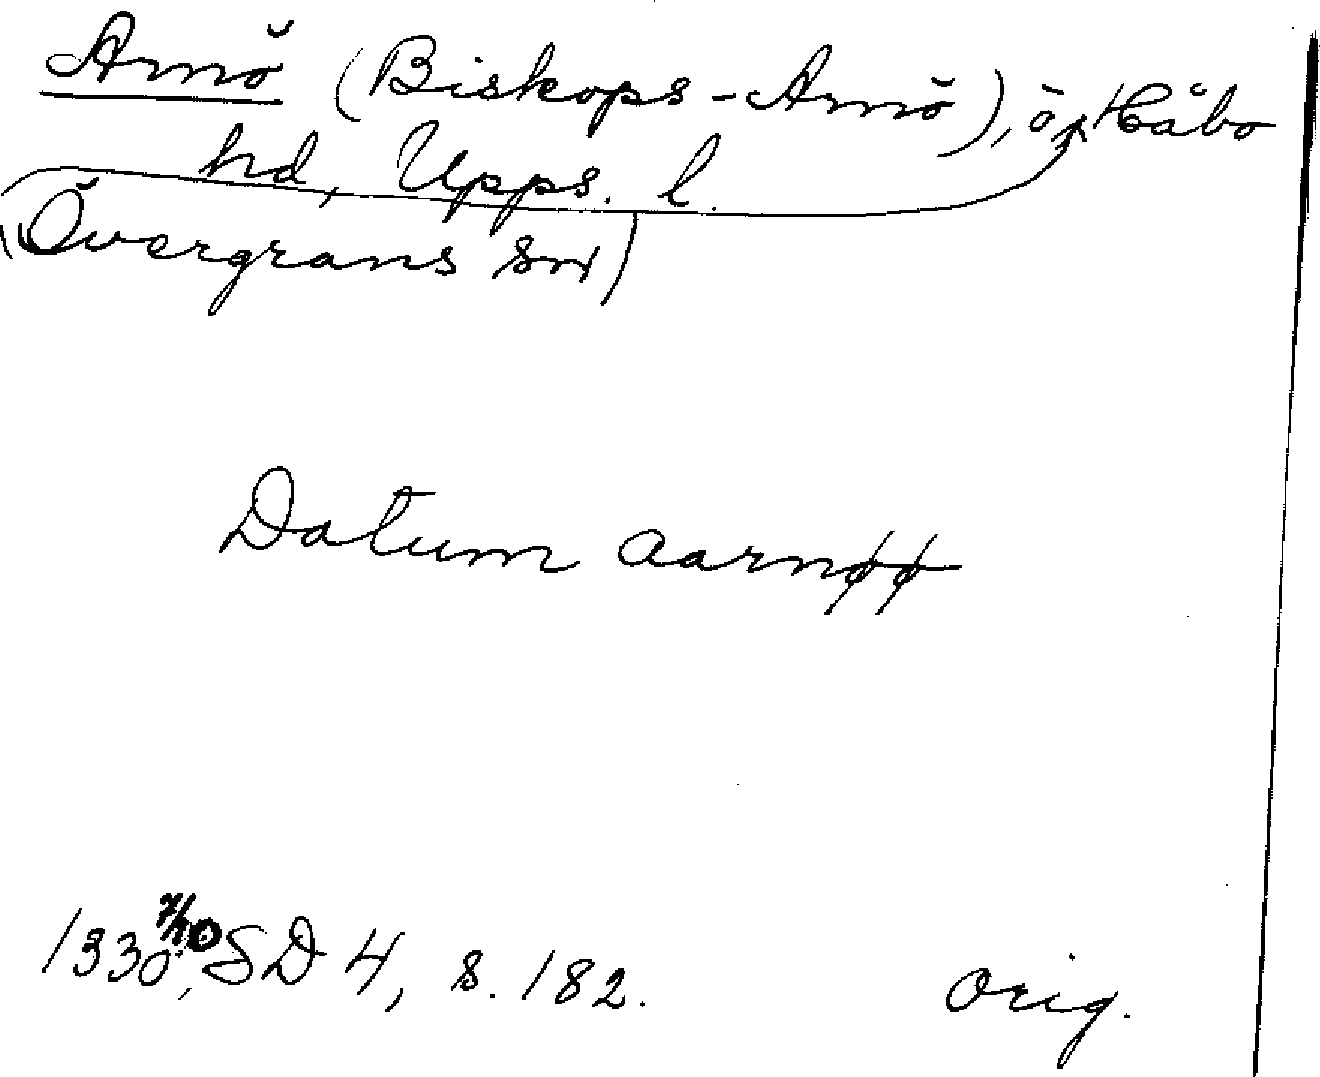 Arnö (Biskops-Arnö), ö, Håbo
hd, Upps. l.
(Övergrans sn)
Datum aarnøø
1330 7/10, SD 4, s. 182. Orig.